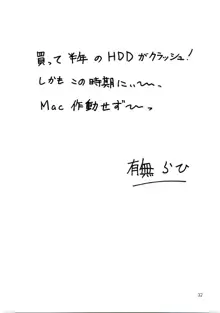 買って半年のHDDがクラッシュ!
しかもこの時期にぃ〜〜、
Mac 作動せず〜〜っ
有無らひ
32